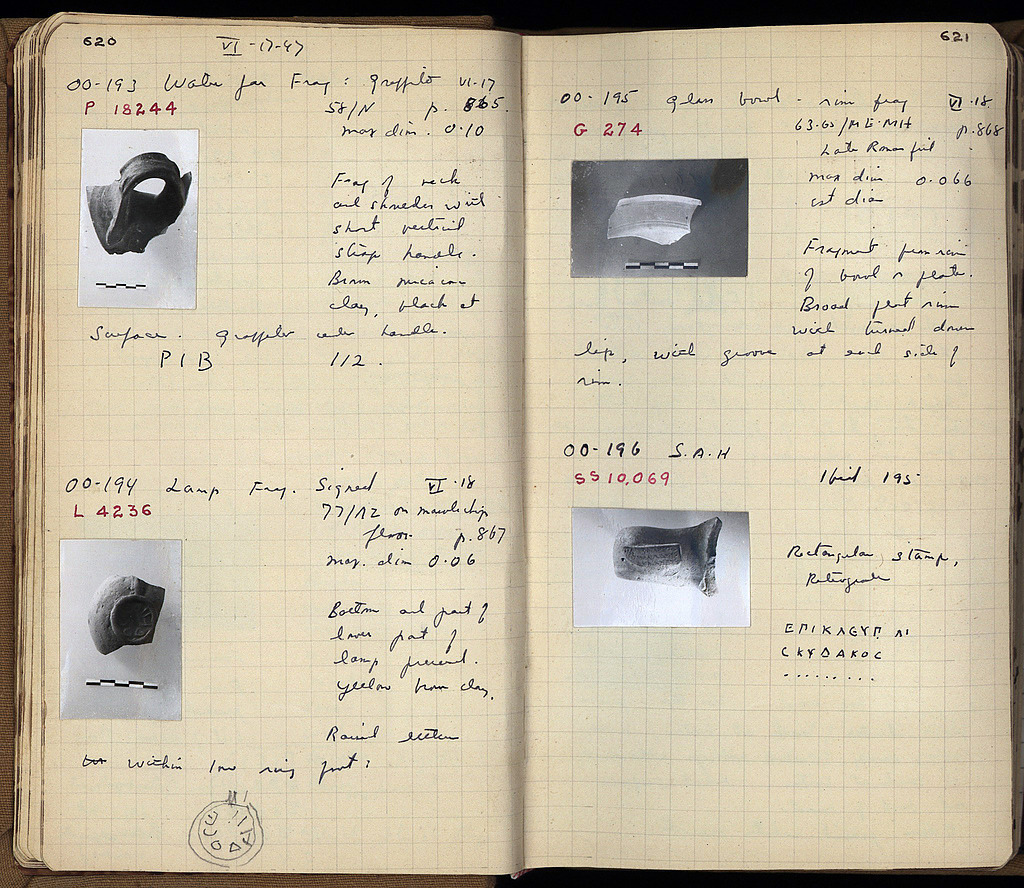 620
VI-17-47
OO-193 Water jar Frag: graffito VI-17
P 18244
58/N p. 865.
max dim. 0.10
Frag of neck
and shoulder with
short vertical
strap handle.
Brown micaceous
clay, black at
Surface. graffito under handle.
P I B 112.
OO-194 Lamp Frag. Signed VI-18
L 4236
77/12 on marble chip
floor p. 867
max. dim 0.06
Bottom and part of
lower part of
lamp preserved.
Yellow brown clay.
Raised letters
within low ring foot:
621
OO-195 glass bowl - rim frag VI-18
G 274
p. 868
Late Roman fill
max dim 0.066
est diam
Fragment from rim
of bowl or plate.
Broad flat rim
with turned down
lip, with groove at each side of
rim.
OO-196 S.A.H
SS 10,069
Ibid 195
Rectangular stamp,
Retrograde
ΕΠΙΚΛΕΥΠ
CΚΥΔΑΚΟC
.........